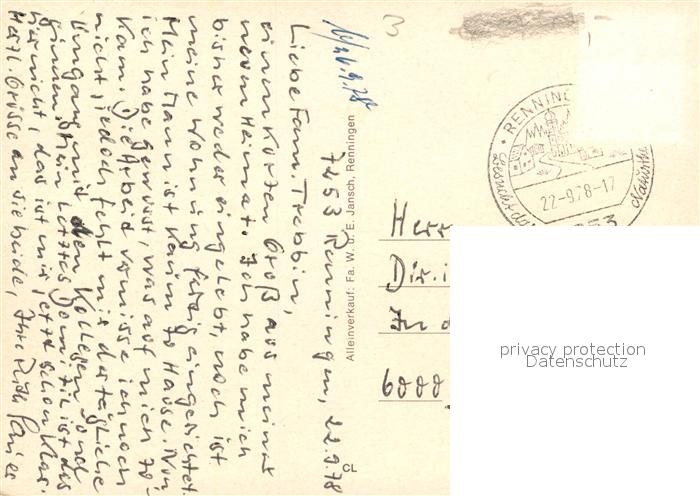 W/26.9.78
7253 Renningen, 22.9.78
Liebe Fam. Trebbin,
einen kurzen Gruß aus meiner
neuen Heimat. Ich habe mich
bisher weder eingelebt, noch ist
meine Wohnung fertig eingerichtet.
Mein Mann ist kaum zu Hause. Nun
ich habe gewusst, was auf mich zu-
kam. Die Arbeit vermisse ich noch
nicht, jedoch fehlt mir der tägliche
Umgang mit den Kollegen und
innen. Mein letztes Domizil ist das
hier nicht, das ist mir jetzt schon klar.
Herzl. Grüsse an Sie beide, Ihre
Alleinverkauf: Fa. W. u. E. Jansch, Renningen
CL
RENNING
Besucht da
22-9.78-17
Naturthe
253
Herr
Dir. i
In d
6000
privacy protection
Datenschutz